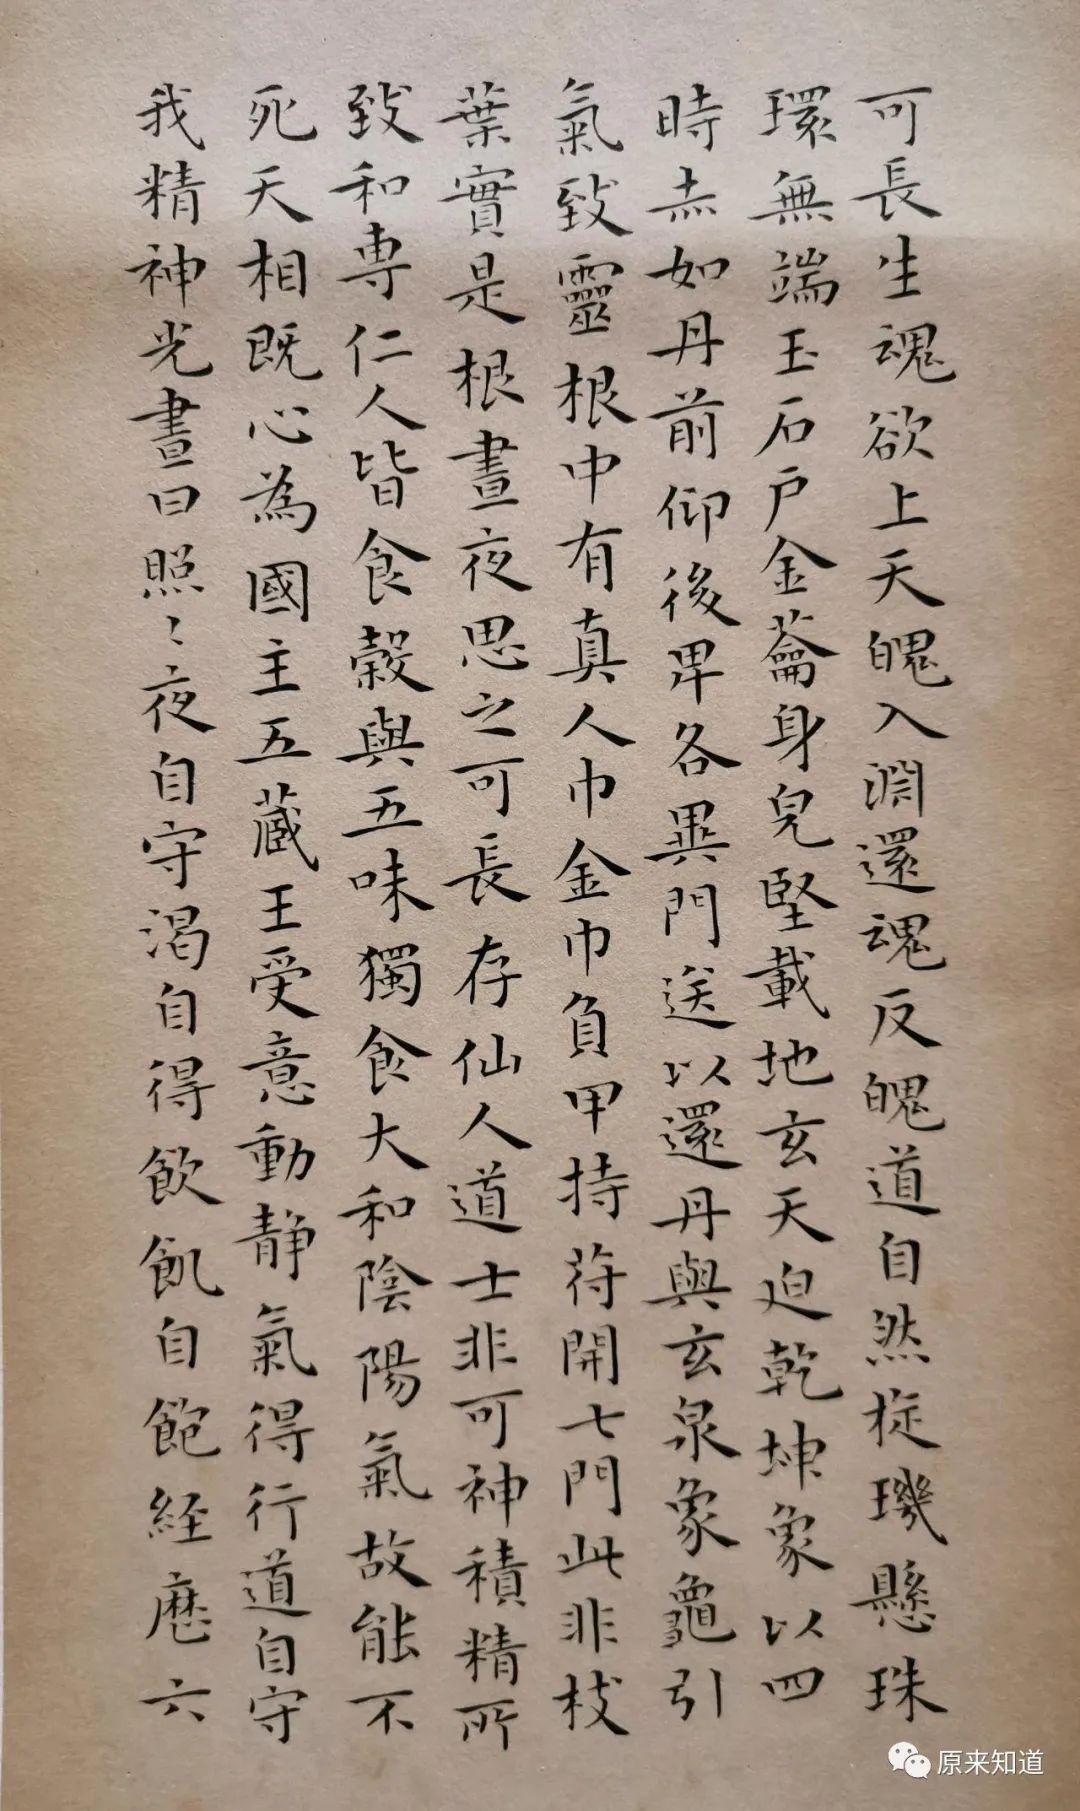 可長生魂欲上天魄入淵還魂反魄道自然㫌璣懸珠
環無端玉石戶金蘥身皃堅載地玄天迫乾坤象以四
時赤如丹前仰後卑各異門送以還丹與玄泉象龜引
氣致靈根中有真人巾金巾負甲持苻開七門此非枝
葉實是根晝夜思之可長存仙人道士非可神積精所
致和專仁人皆食穀與五味獨食大和陰陽氣故能不
死天相既心為國主五蔵王受意動靜氣得行道自守
我精神光晝日照〻夜自守渴自得飲飢自飽経歷六
原来知道